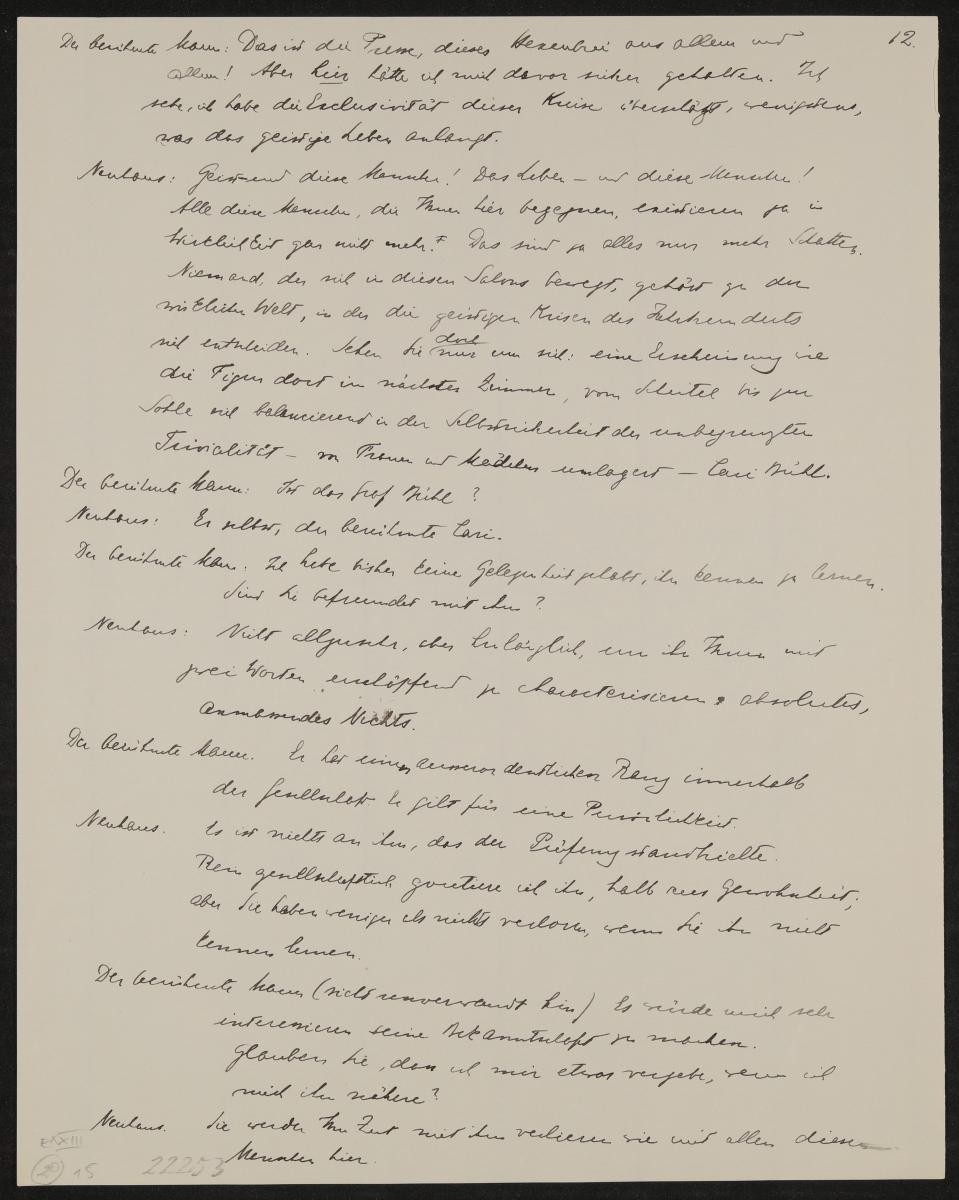 12.
Der berühmte Mann: Das ist die Presse, dieses Hexenbrei aus allem und
allem! Aber hier hätte ich mich davor sicher gehalten. Ich
sehe, ich habe die Exclusivität dieser Kreise überschätzt, wenigstens,
was das geistige Leben anlangt.
Neuhaus: Geist und diese Menschen! Das Leben – und diese Menschen!
Alle diese Menschen, die Ihnen hier begegnen, existieren ja in
Wirklichkeit gar nicht mehr. Das sind ja alles nur mehr Schatten.
Niemand, der sich in diesen Salons bewegt, gehört zu der
wirklichen Welt, in der die geistigen Krisen des Jahrhunderts
sich entscheiden. Sehen Sie doch nur um sich: eine Erscheinung wie
die Figur dort im nächsten Zimmer, vom Scheitel bis zur
Sohle sich balancierend in der Selbstsicherheit der unbegrenzten
Trivialität – von Frauen und Mädchen umlagert – Cari Bühl.
Der berühmte Mann: Ist das Graf Bühl?
Neuhaus: Er selbst, der berühmte Cari.
Der berühmte Mann. Ich habe bisher keine Gelegenheit gehabt, ihn kennen zu lernen.
Sind Sie befreundet mit ihm?
Neuhaus: Nicht allzusehr, aber hinlänglich, um ihn Ihnen mit
zwei Worten erschöpfend zu charakterisieren: absolutes,
anmassendes Nichts.
Der berühmte Mann. Er hat einen ausserordentlichen Rang innerhalb
der Gesellschaft. Er gilt für eine Persönlichkeit.
Neuhaus. Es ist nichts an ihm, das der Prüfung standhielte.
Rein gesellschaftlich goutiere ich ihn, halb aus Gewohnheit;
aber Sie haben weniger als nichts verloren, wenn Sie ihn nicht
kennen lernen.
Der berühmte Mann (sieht unverwandt hin) Es würde mich sehr
interessieren seine Bekanntschaft zu machen.
Glauben Sie, dass ich mir etwas vergebe, wenn ich
mich ihm nähere?
Neuhaus. Sie werden Ihre Zeit mit ihm verlieren wie mit allen diesen
Menschen hier.
E XXIII
15
22253